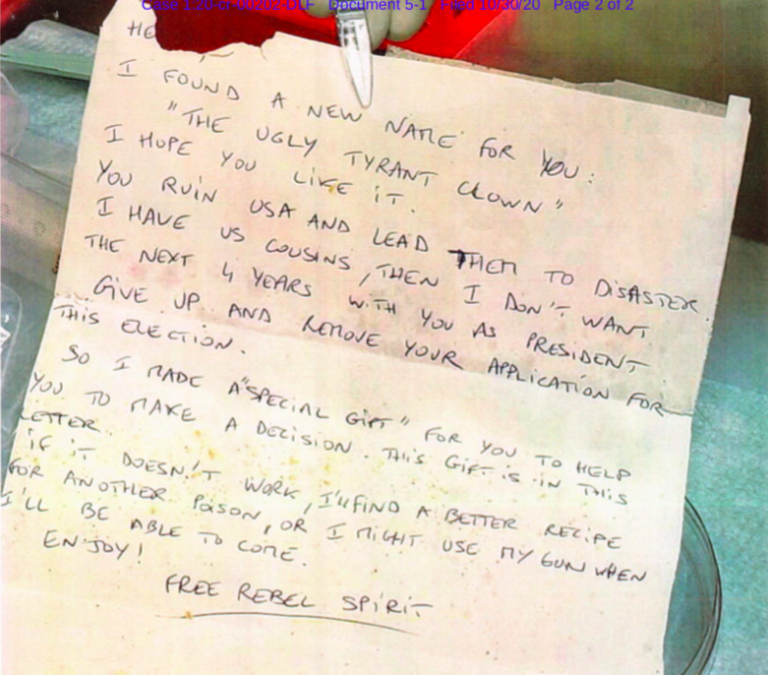 Case 1:20-cr-00202-DLF Document 5-1 Filed 10/30/20 Page 2 of 2
HE
I FOUND A NEW NAME FOR YOU:
"THE UGLY TYRANT CLOWN"
I HOPE YOU LIKE IT.
YOU RUIN USA AND LEAD THEM TO DISASTER.
I HAVE US COUSINS, THEN I DON'T WANT
THE NEXT 4 YEARS WITH YOU AS PRESIDENT.
GIVE UP AND REMOVE YOUR APPLICATION FOR
THIS ELECTION.
SO I MADE A "SPECIAL GIFT" FOR YOU TO HELP
YOU TO MAKE A DECISION. THIS GIFT IS IN THIS
LETTER.
IF IT DOESN'T WORK, I'll FIND A BETTER RECIPE
FOR ANOTHER POISON, OR I MIGHT USE MY GUN WHEN
I'LL BE ABLE TO COME.
ENJOY!
FREE REBEL SPIRIT